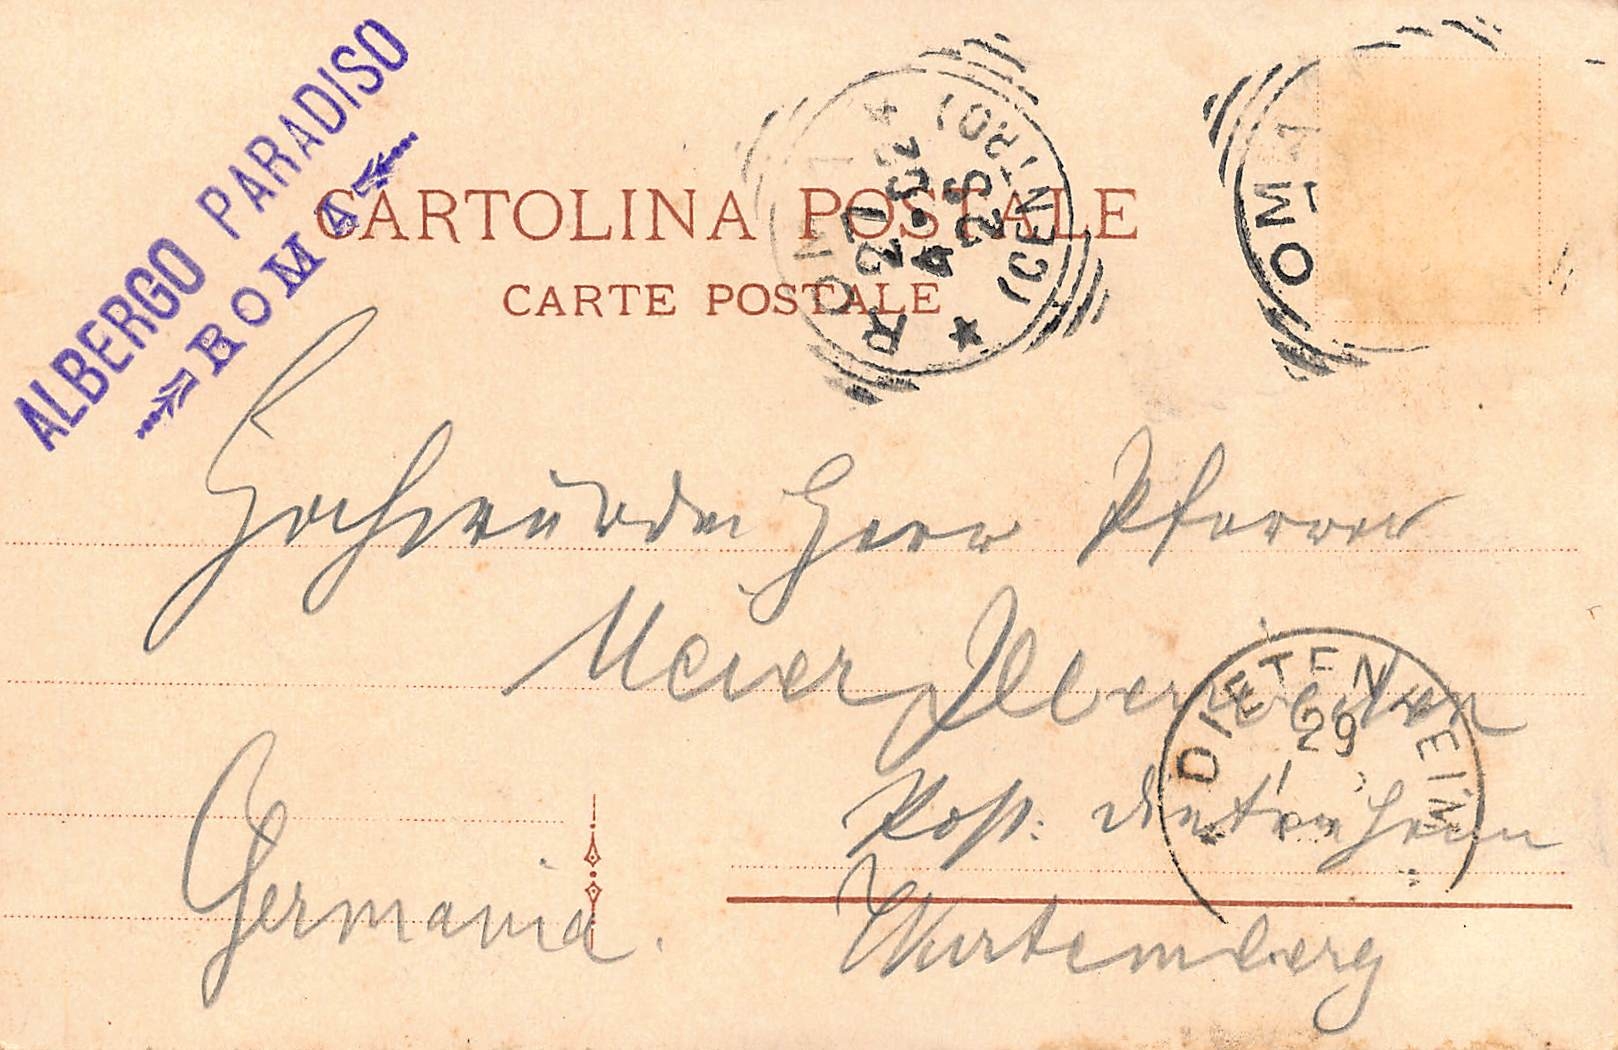 ALBERGO PARADISO
ROMA
CARTOLINA POSTALE
CARTE POSTALE
ROMA (CENTRO)
27
4·02
2S
OMA
Hochwürden Herr Pfarrer
Meier Illereichen
DIETENHEIM
29
Post: Dietenheim
Germania.
Würtemberg